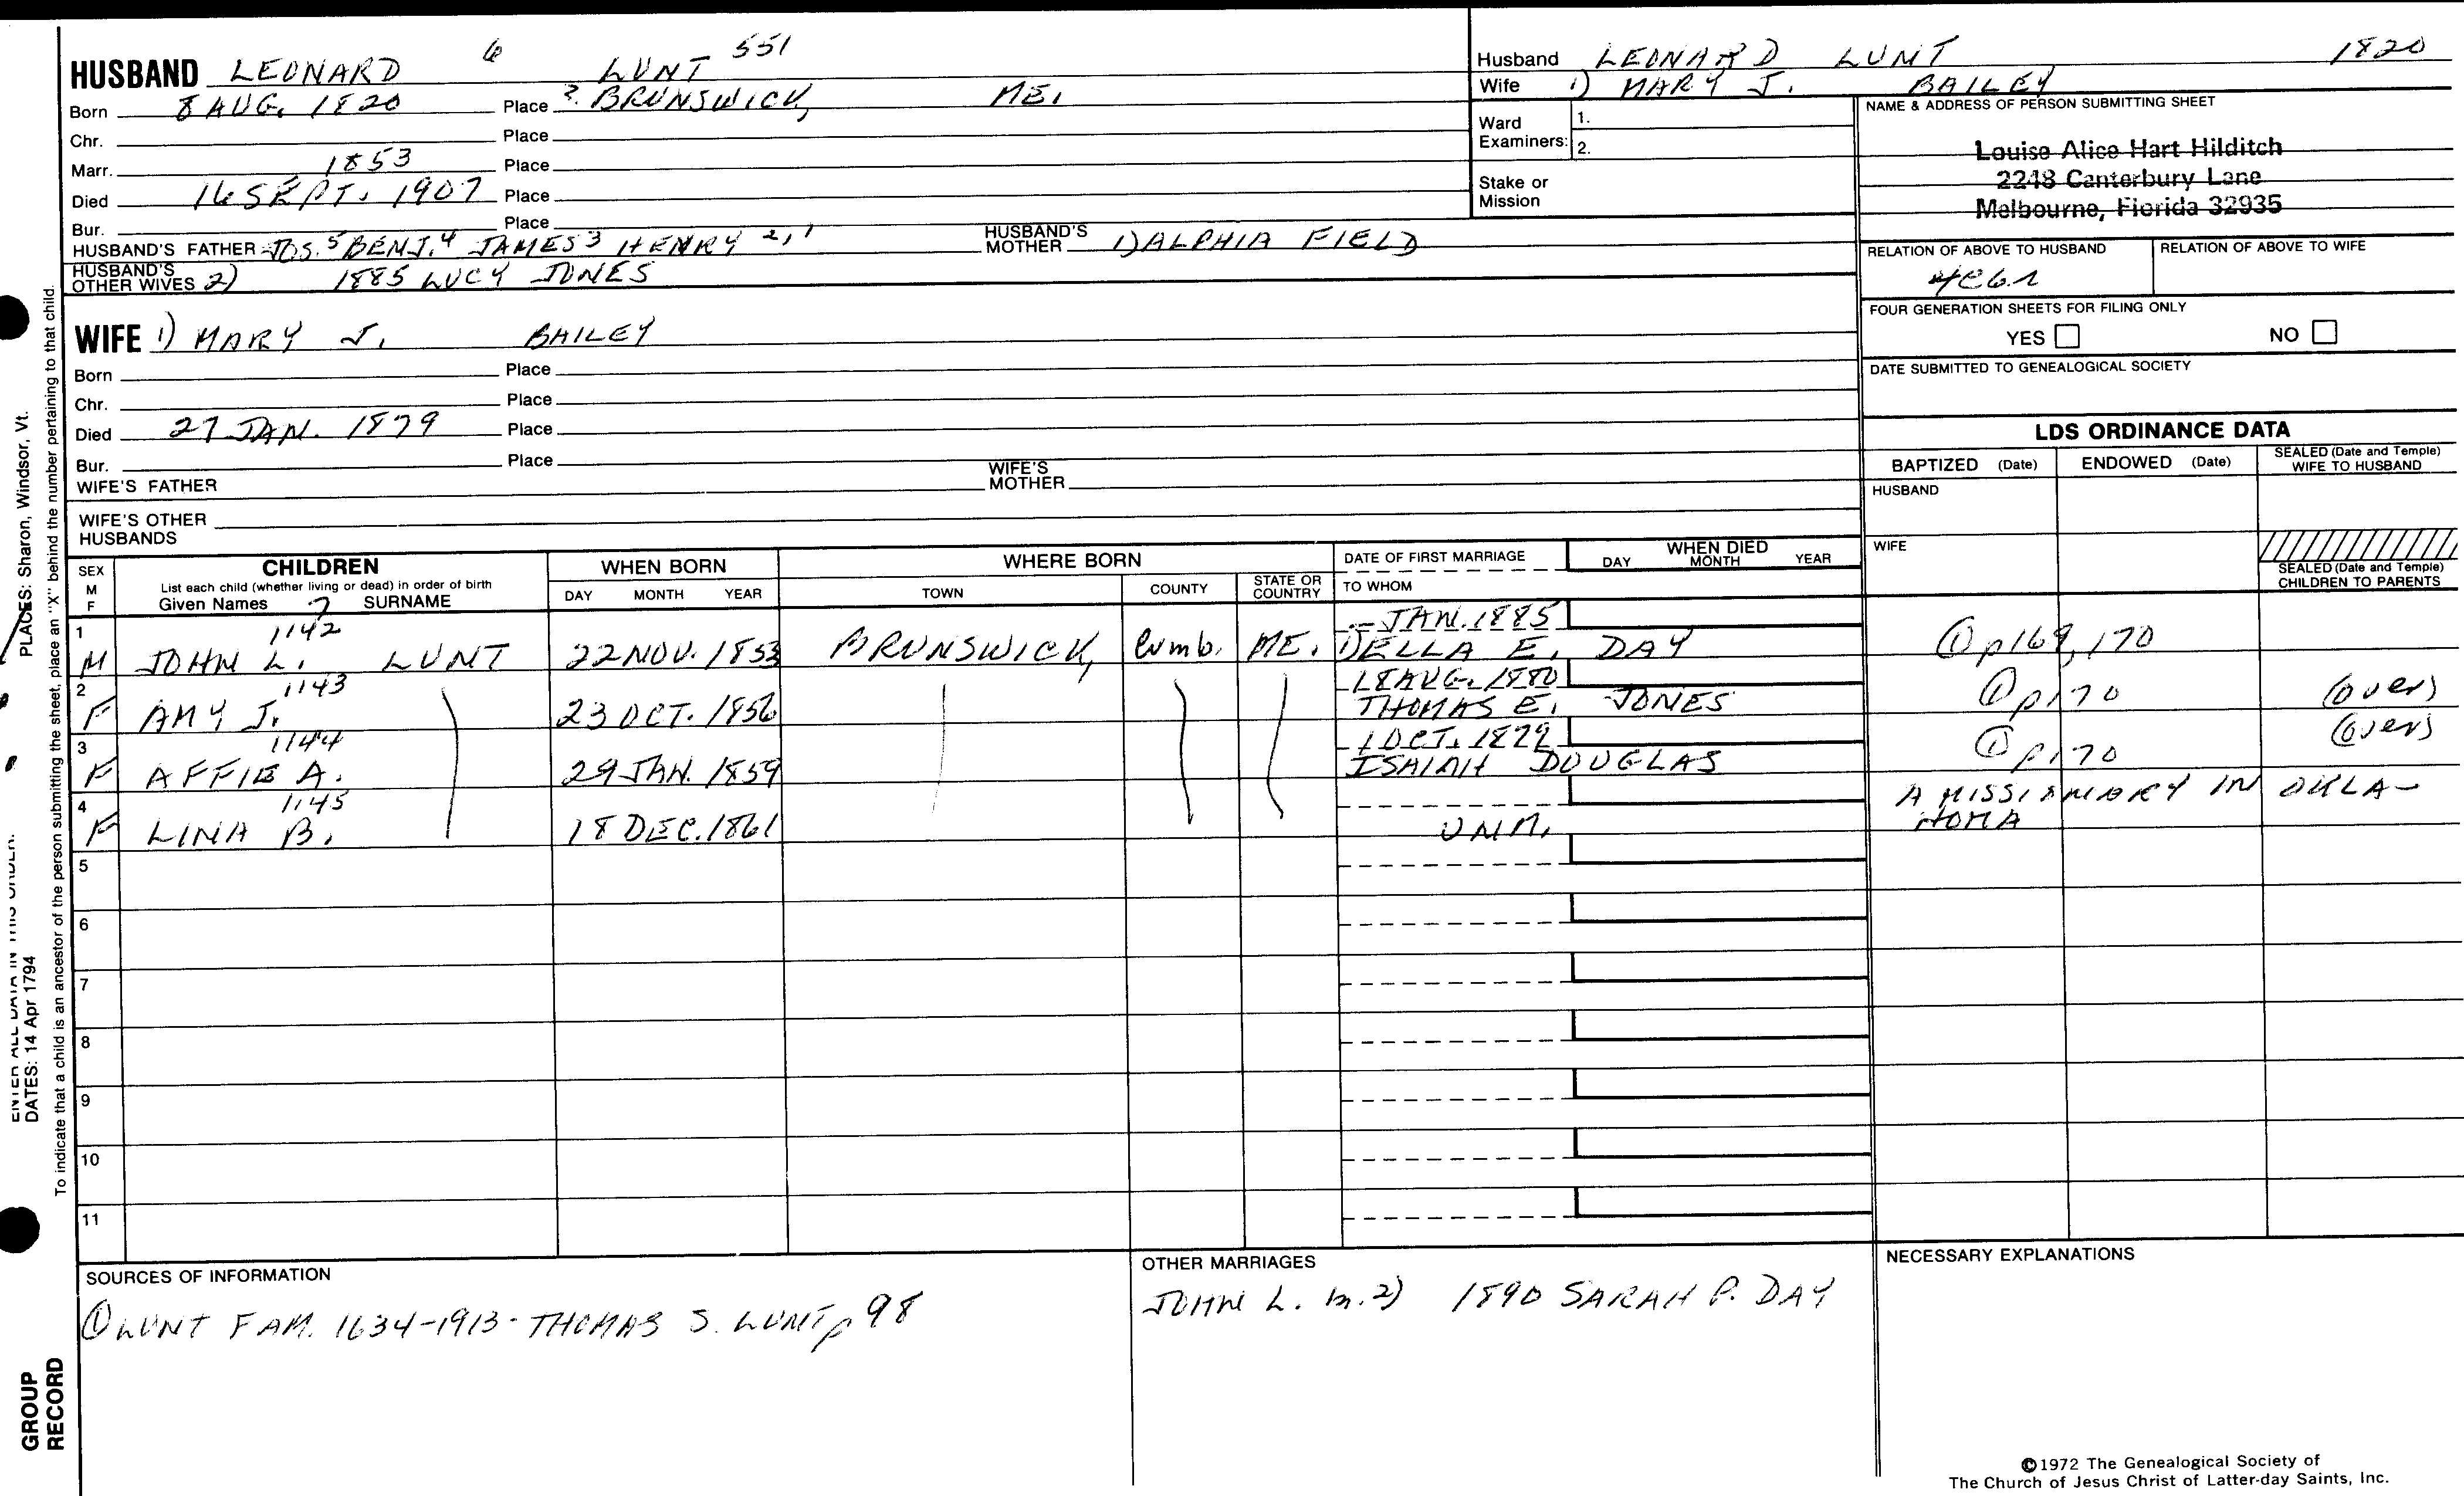 HUSBAND LEONARD 6 LUNT 551
Born 8 AUG. 1820 Place ?. BRUNSWICK, ME.
Chr. Place
Marr. 1853 Place
Died 16 SEPT. 1907 Place
Bur. Place
HUSBAND'S FATHER JOS.5 BENJ.4 JAMES3 HENRY 2,1 HUSBAND'S MOTHER 1) ALPHIA FIELD
HUSBAND'S OTHER WIVES 2) 1885 LUCY JONES
Husband LEONARD LUNT 1820
Wife 1) MARY J. BAILEY
Ward Examiners: 1.
2.
Stake or Mission
NAME & ADDRESS OF PERSON SUBMITTING SHEET
Louise Alice Hart Hilditch
2248 Canterbury Lane
Melbourne, Florida 32935
RELATION OF ABOVE TO HUSBAND RELATION OF ABOVE TO WIFE
4C6r
FOUR GENERATION SHEETS FOR FILING ONLY
YES NO
DATE SUBMITTED TO GENEALOGICAL SOCIETY
WIFE 1) MARY J. BAILEY
Born Place
Chr. Place
Died 27 JAN. 1879 Place
Bur. Place
WIFE'S FATHER WIFE'S MOTHER
WIFE'S OTHER HUSBANDS
LDS ORDINANCE DATA
BAPTIZED (Date) ENDOWED (Date) SEALED (Date and Temple) WIFE TO HUSBAND
HUSBAND
WIFE
SEALED (Date and Temple) CHILDREN TO PARENTS
SEX M F
CHILDREN
List each child (whether living or dead) in order of birth
Given Names 7 SURNAME
WHEN BORN
DAY MONTH YEAR
WHERE BORN
TOWN COUNTY STATE OR COUNTRY
DATE OF FIRST MARRIAGE
TO WHOM
WHEN DIED
DAY MONTH YEAR
1 1142 - JAN. 1885
M JOHN L. LUNT 22 NOV. 1853 BRUNSWICK, Cumb. ME. 1) ELLA E. DAY ① p169,170
2 1143 18 AUG. 1880
F AMY J. 23 OCT. 1856 THOMAS E. JONES ① p170 (over)
3 1144 1 OCT. 1879
F AFFIE A. 29 JAN. 1859 ISAIAH DOUGLAS ① p170 (over)
4 1145
F LINA B. 18 DEC. 1861 UNM. A MISSIONARY IN OKLA-
HOMA
5
6
7
8
9
10
11
SOURCES OF INFORMATION
① LUNT FAM. 1634-1913 - THOMAS S. LUNT, p 98
OTHER MARRIAGES
JOHN L. m. 2) 1890 SARAH P. DAY
NECESSARY EXPLANATIONS
©1972 The Genealogical Society of
The Church of Jesus Christ of Latter-day Saints, Inc.
PLACES: Sharon, Windsor, Vt.
To indicate that a child is an ancestor of the person submitting the sheet, place an "X" behind the number pertaining to that child.
ENTER ALL DATA IN THIS ORDER:
DATES: 14 Apr 1794
GROUP
RECORD